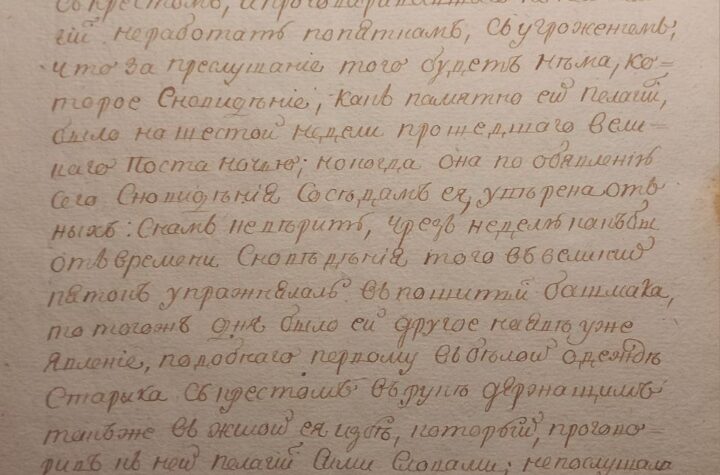 съкрестомъ, и проговоривша
гїй неработать попяткамъ, съугроженіемъ,
что за преслушаніе того будетъ нѣма, ко-
торое Сновидѣніе, какъ памятно ей Пелагїй,
было на шестой недели прошедшаго вели-
каго Поста ночью; но когда она по объявленіи
сего Сновидѣнія Сосѣдамъ ея, увѣрена отъ
ныхъ: Снамъ невѣрить, чрезъ неделю какъ бы
отъ времени Сновидѣнія того въ великій
пятокъ упражнялась въ пошитьѣ башмака,
то тогожъ дня было ей другое наявѣ уже
явленіе, подобнаго первому въ бѣлой одеждѣ
Старика съ крестомъ въ рукѣ держащимъ
такъ же въ жилой ея избѣ, который, прогово-
рилъ къ ней Пелагїй Сими Словами, непослушала